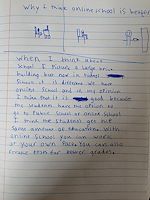 Why I think online school is
When I think about
School I picture a large
building but now in todays
School it is different we have
online School and in my opinion
I think that it is good because
the students have the option to
go to Public School or online school
I think the Students get the
Same amount of education with
online School you can work
at your own Pace. You can also
tests for better grades.